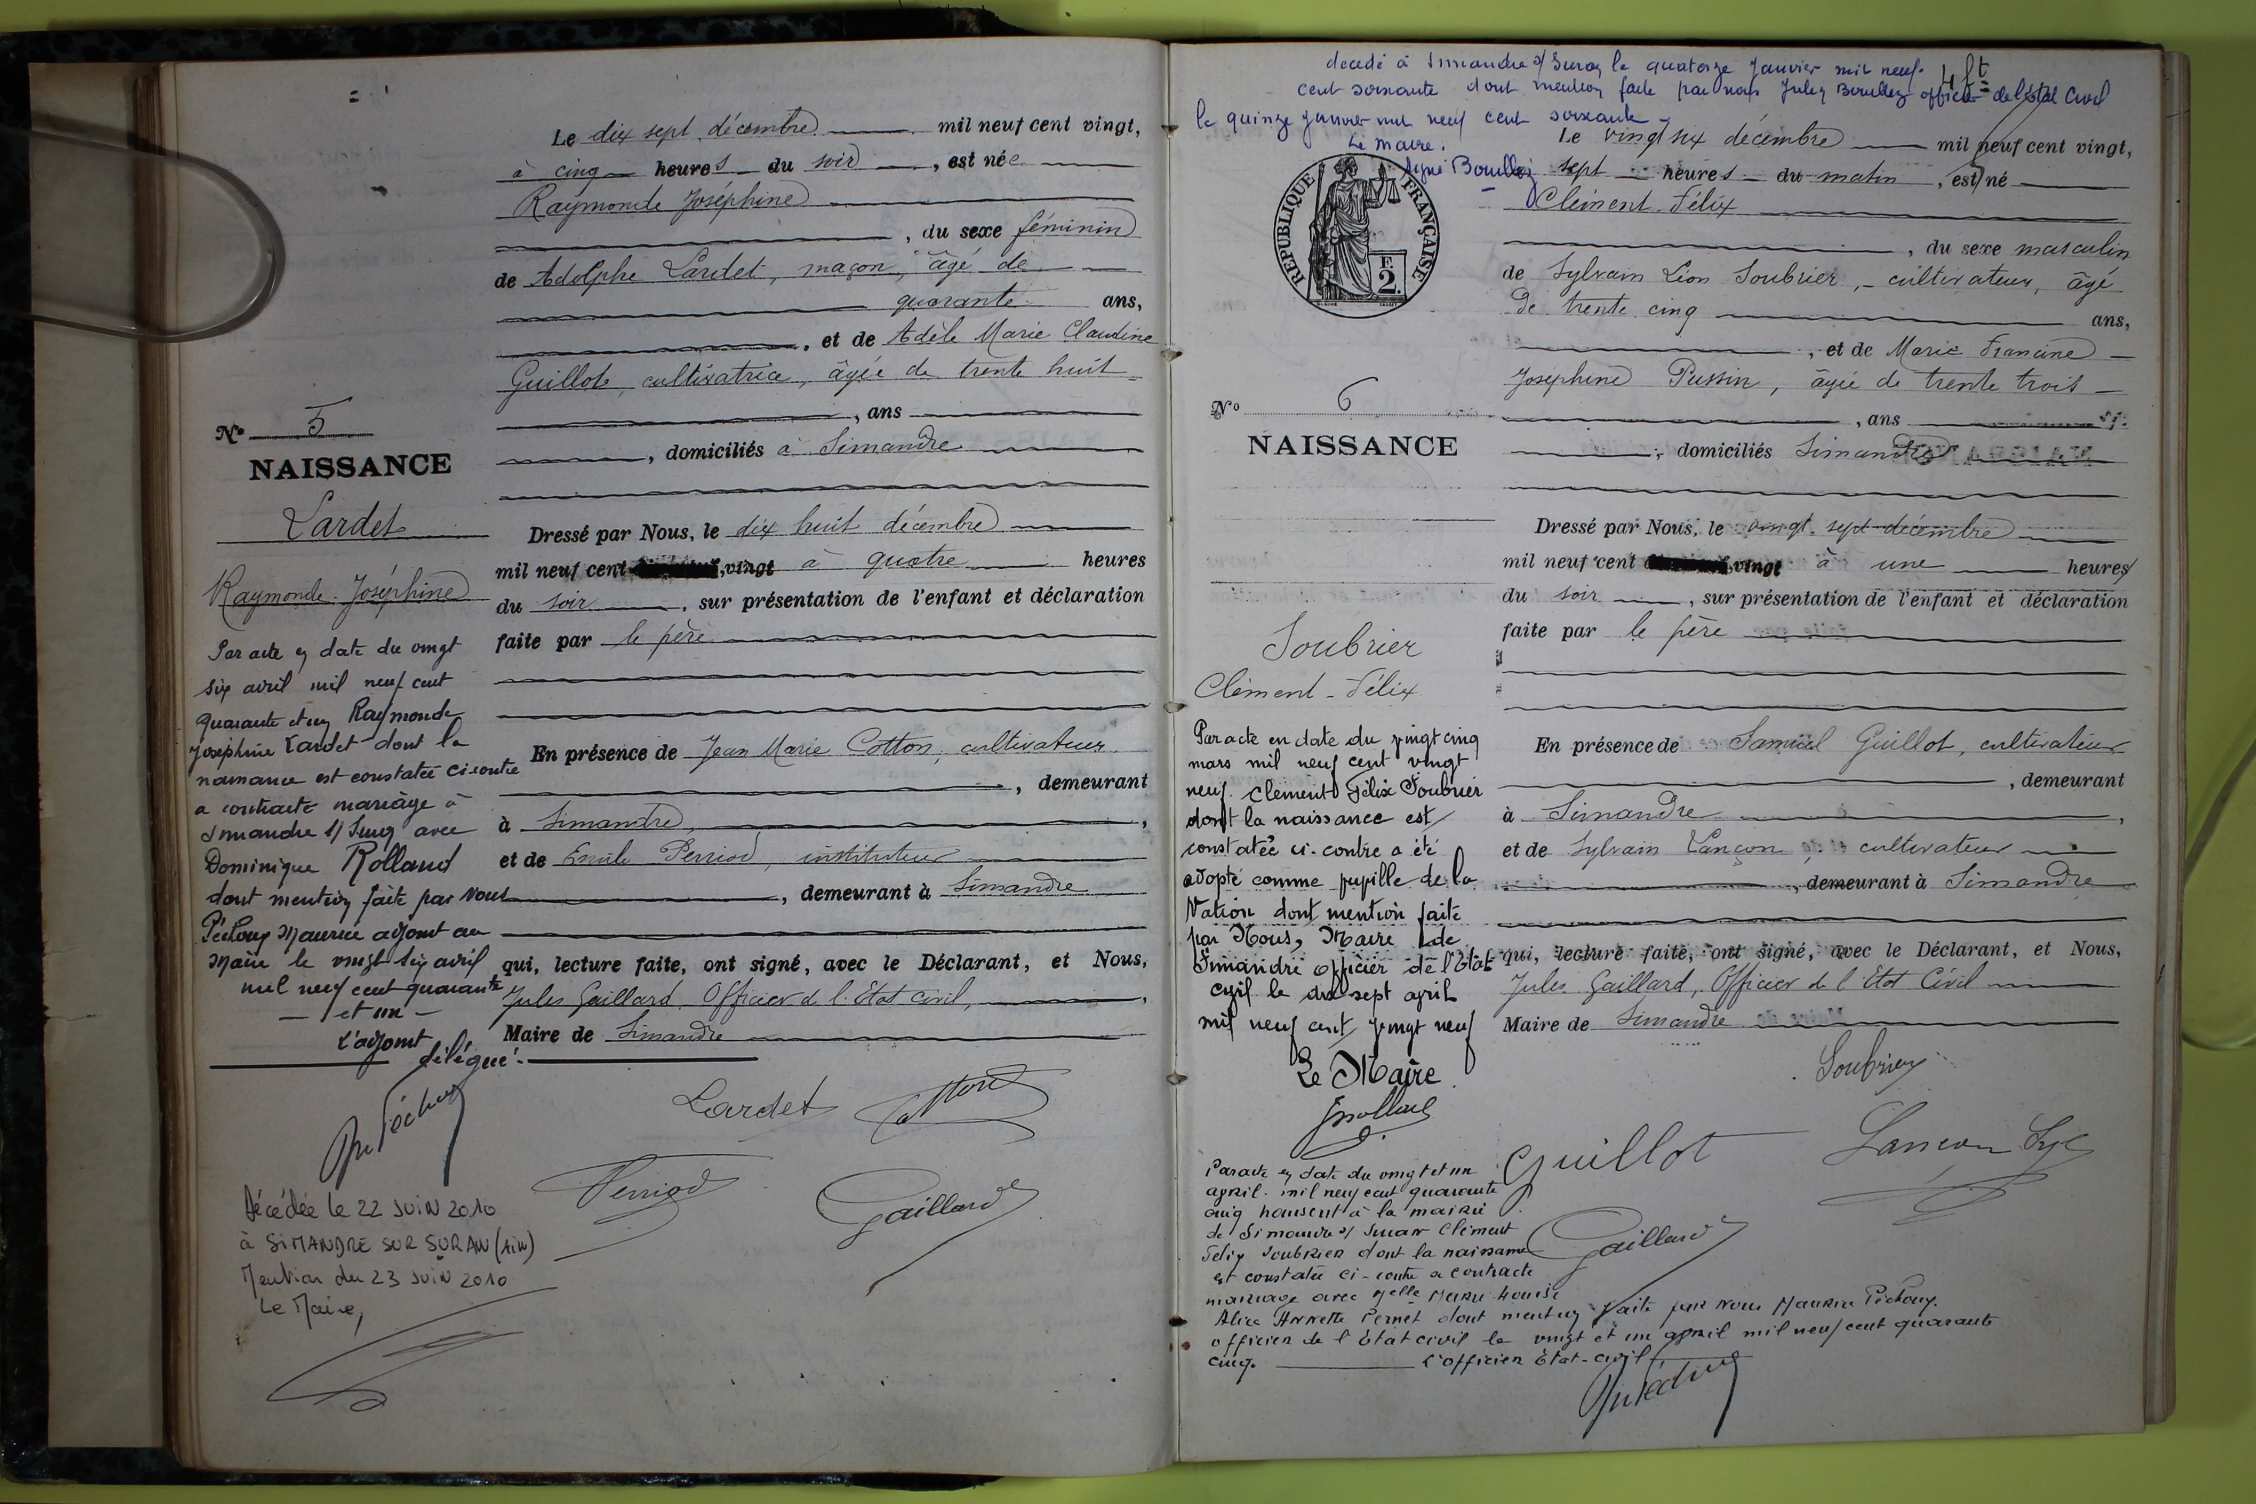 Le dix sept décembre mil neuf cent vingt,
à cinq heures du soir, est née
Raymonde Joséphine
, du sexe féminin
de Adolphe Lardet, maçon, âgé de
quarante ans,
, et de Adèle Marie Claudine
Guillot, cultivatrice, âgée de trente huit
, ans
, domiciliés à Simandre
Dressé par Nous, le dix huit décembre
mil neuf cent vingt à quatre heures
du soir, sur présentation de l'enfant et déclaration
faite par le père
En présence de Jean Marie Cotton, cultivateur
, demeurant
à Simandre,
et de Emile Perriod, instituteur
, demeurant à Simandre
qui, lecture faite, ont signé, avec le Déclarant, et Nous,
Jules Gaillard, Officier de l'Etat Civil,
Maire de Simandre
Lardet Cotton
Perriod Gaillard
N° 5
NAISSANCE
Lardet
Raymonde Joséphine
Par acte en date du vingt
six avril mil neuf cent
quarante et un Raymonde
Joséphine Lardet dont la
naissance est constatée ci-contre
a contracté mariage à
Simandre s/ Suran avec
Dominique Rolland
dont mention faite par nous
Péchoux Maurice adjoint au
Maire le vingt six avril
mil neuf cent quarante
- et un -
L'adjoint
délégué.
Décédée le 22 JUIN 2010
à SIMANDRE SUR SURAN (Ain)
Mention du 23 JUIN 2010
Le Maire,
decedé à Simandre s/ Suran le quatorze Janvier mil neuf
cent soixante dont mention faite par nous Jules officier de l'Etat Civil
le quinze janvier mil neuf cent soixante
Le Maire.
signé
4 ft
REPUBLIQUE FRANÇAISE
F.
2.
Le vingt six décembre mil neuf cent vingt,
sept heures du matin, est né
Clément Félix
, du sexe masculin
de Sylvain Léon Soubrier, cultivateur, âgé
de trente cinq ans,
, et de Marie Francine
Joséphine Pussin, âgée de trente trois
, ans
, domiciliés Simandre
Dressé par Nous, le vingt sept décembre
mil neuf cent vingt à une heures
du soir, sur présentation de l'enfant et déclaration
faite par le père
En présence de Samuel Guillot, cultivateur
, demeurant
à Simandre,
et de Sylvain Lançon, cultivateur
, demeurant à Simandre
qui, lecture faite, ont signé, avec le Déclarant, et Nous,
Jules Gaillard, Officier de l'Etat Civil
Maire de Simandre
Soubrier
Guillot Lançon Syl
Gaillard
N° 6
NAISSANCE
Soubrier
Clément-Félix
Par acte en date du vingt cinq
mars mil neuf cent vingt
neuf Clément Félix Soubrier
dont la naissance est
constatée ci-contre a été
adopté comme pupille de la
Nation dont mention faite
par Nous, Maire de
Simandre officier de l'Etat
civil le dix sept avril
mil neuf cent vingt neuf
Le Maire
Par acte en date du vingt et un
april mil neuf cent quarante
cinq à la mairie
de Simandre s/ Suran Clément
Félix Soubrier dont la naissance
est constatée ci-contre a contracté
mariage avec Melle Marie Louise
Alice Annette Pernet dont mention faite par Nous Maurice Péchoux
officier de l'Etat civil le vingt et un april mil neuf cent quarante
cinq. L'officier Etat-civil